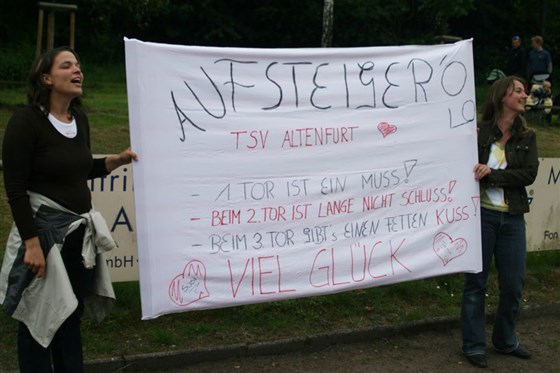 AUFSTEIGER'Ö
LO
TSV ALTENFURT
- 1. TOR IST EIN MUSS!
- BEIM 2. TOR IST LANGE NICHT SCHLUSS!
- BEIM 3. TOR GIBT'S EINEN FETTEN KUSS!
VIEL GLÜCK